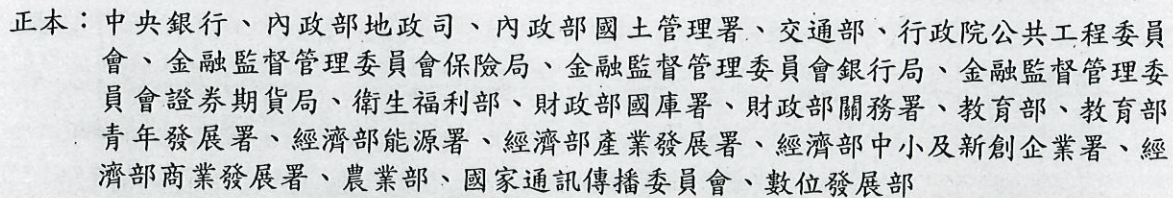 正本：中央銀行、內政部地政司、內政部國土管理署、交通部、行政院公共工程委員
會、金融監督管理委員會保險局、金融監督管理委員會銀行局、金融監督管理委
員會證券期貨局、衛生福利部、財政部國庫署、財政部關務署、教育部、教育部
青年發展署、經濟部能源署、經濟部產業發展署、經濟部中小及新創企業署、經
濟部商業發展署、農業部、國家通訊傳播委員會、數位發展部